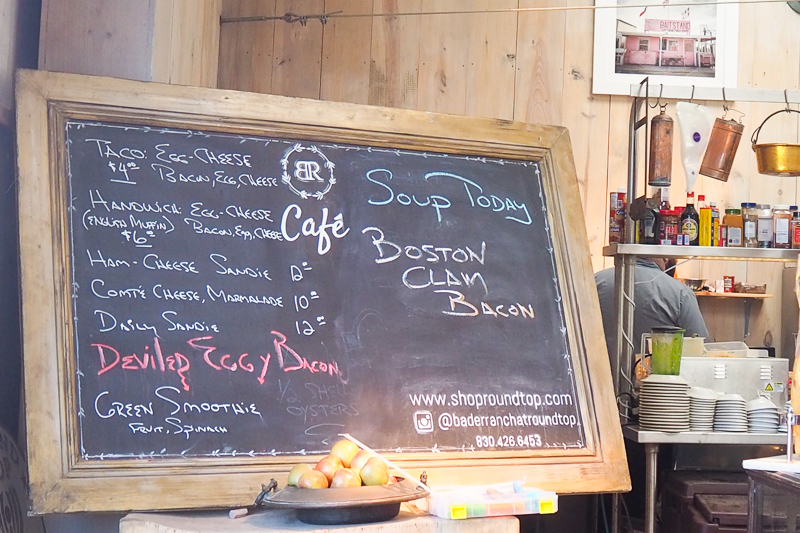 TACO: EGG-CHEESE
$4.00 BACON, EGG, CHEESE
HANDWICH: EGG-CHEESE
(ENGLISH MUFFIN) BACON, EGG, CHEESE
$6.00
HAM-CHEESE SANDIE 12.00
COMTÉ CHEESE, MARMALADE 10.00
DAILY SANDIE 12.00
DEVILED EGGY BACON
1/2 SHELL
OYSTERS
GREEN SMOOTHIE
FRUIT, SPINACH
BR
Café
SOUP TODAY
BOSTON
CLAM
BACON
www.shoproundtop.com
@baderranchatroundtop
830.426.6453
BAIT STAND